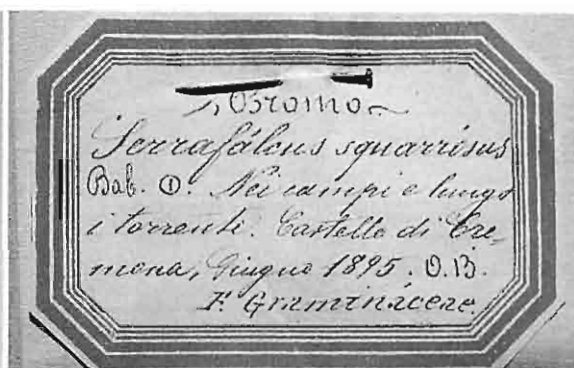 Bromo
Serrafálcus squarrosus
Bab. ①. Nei campi e lungo
i torrenti. Castello di Cre-
mona, Giugno 1895. O.B.
F. Graminácere.